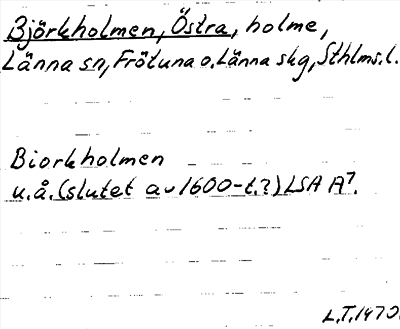 Björkholmen, Östra, holme,
Länna sn, Frötuna o. Länna skg, Sthlms. l.
Biorkholmen
u.å. (slutet av 1600-t.?) LSA A7.
L.T. 1970.